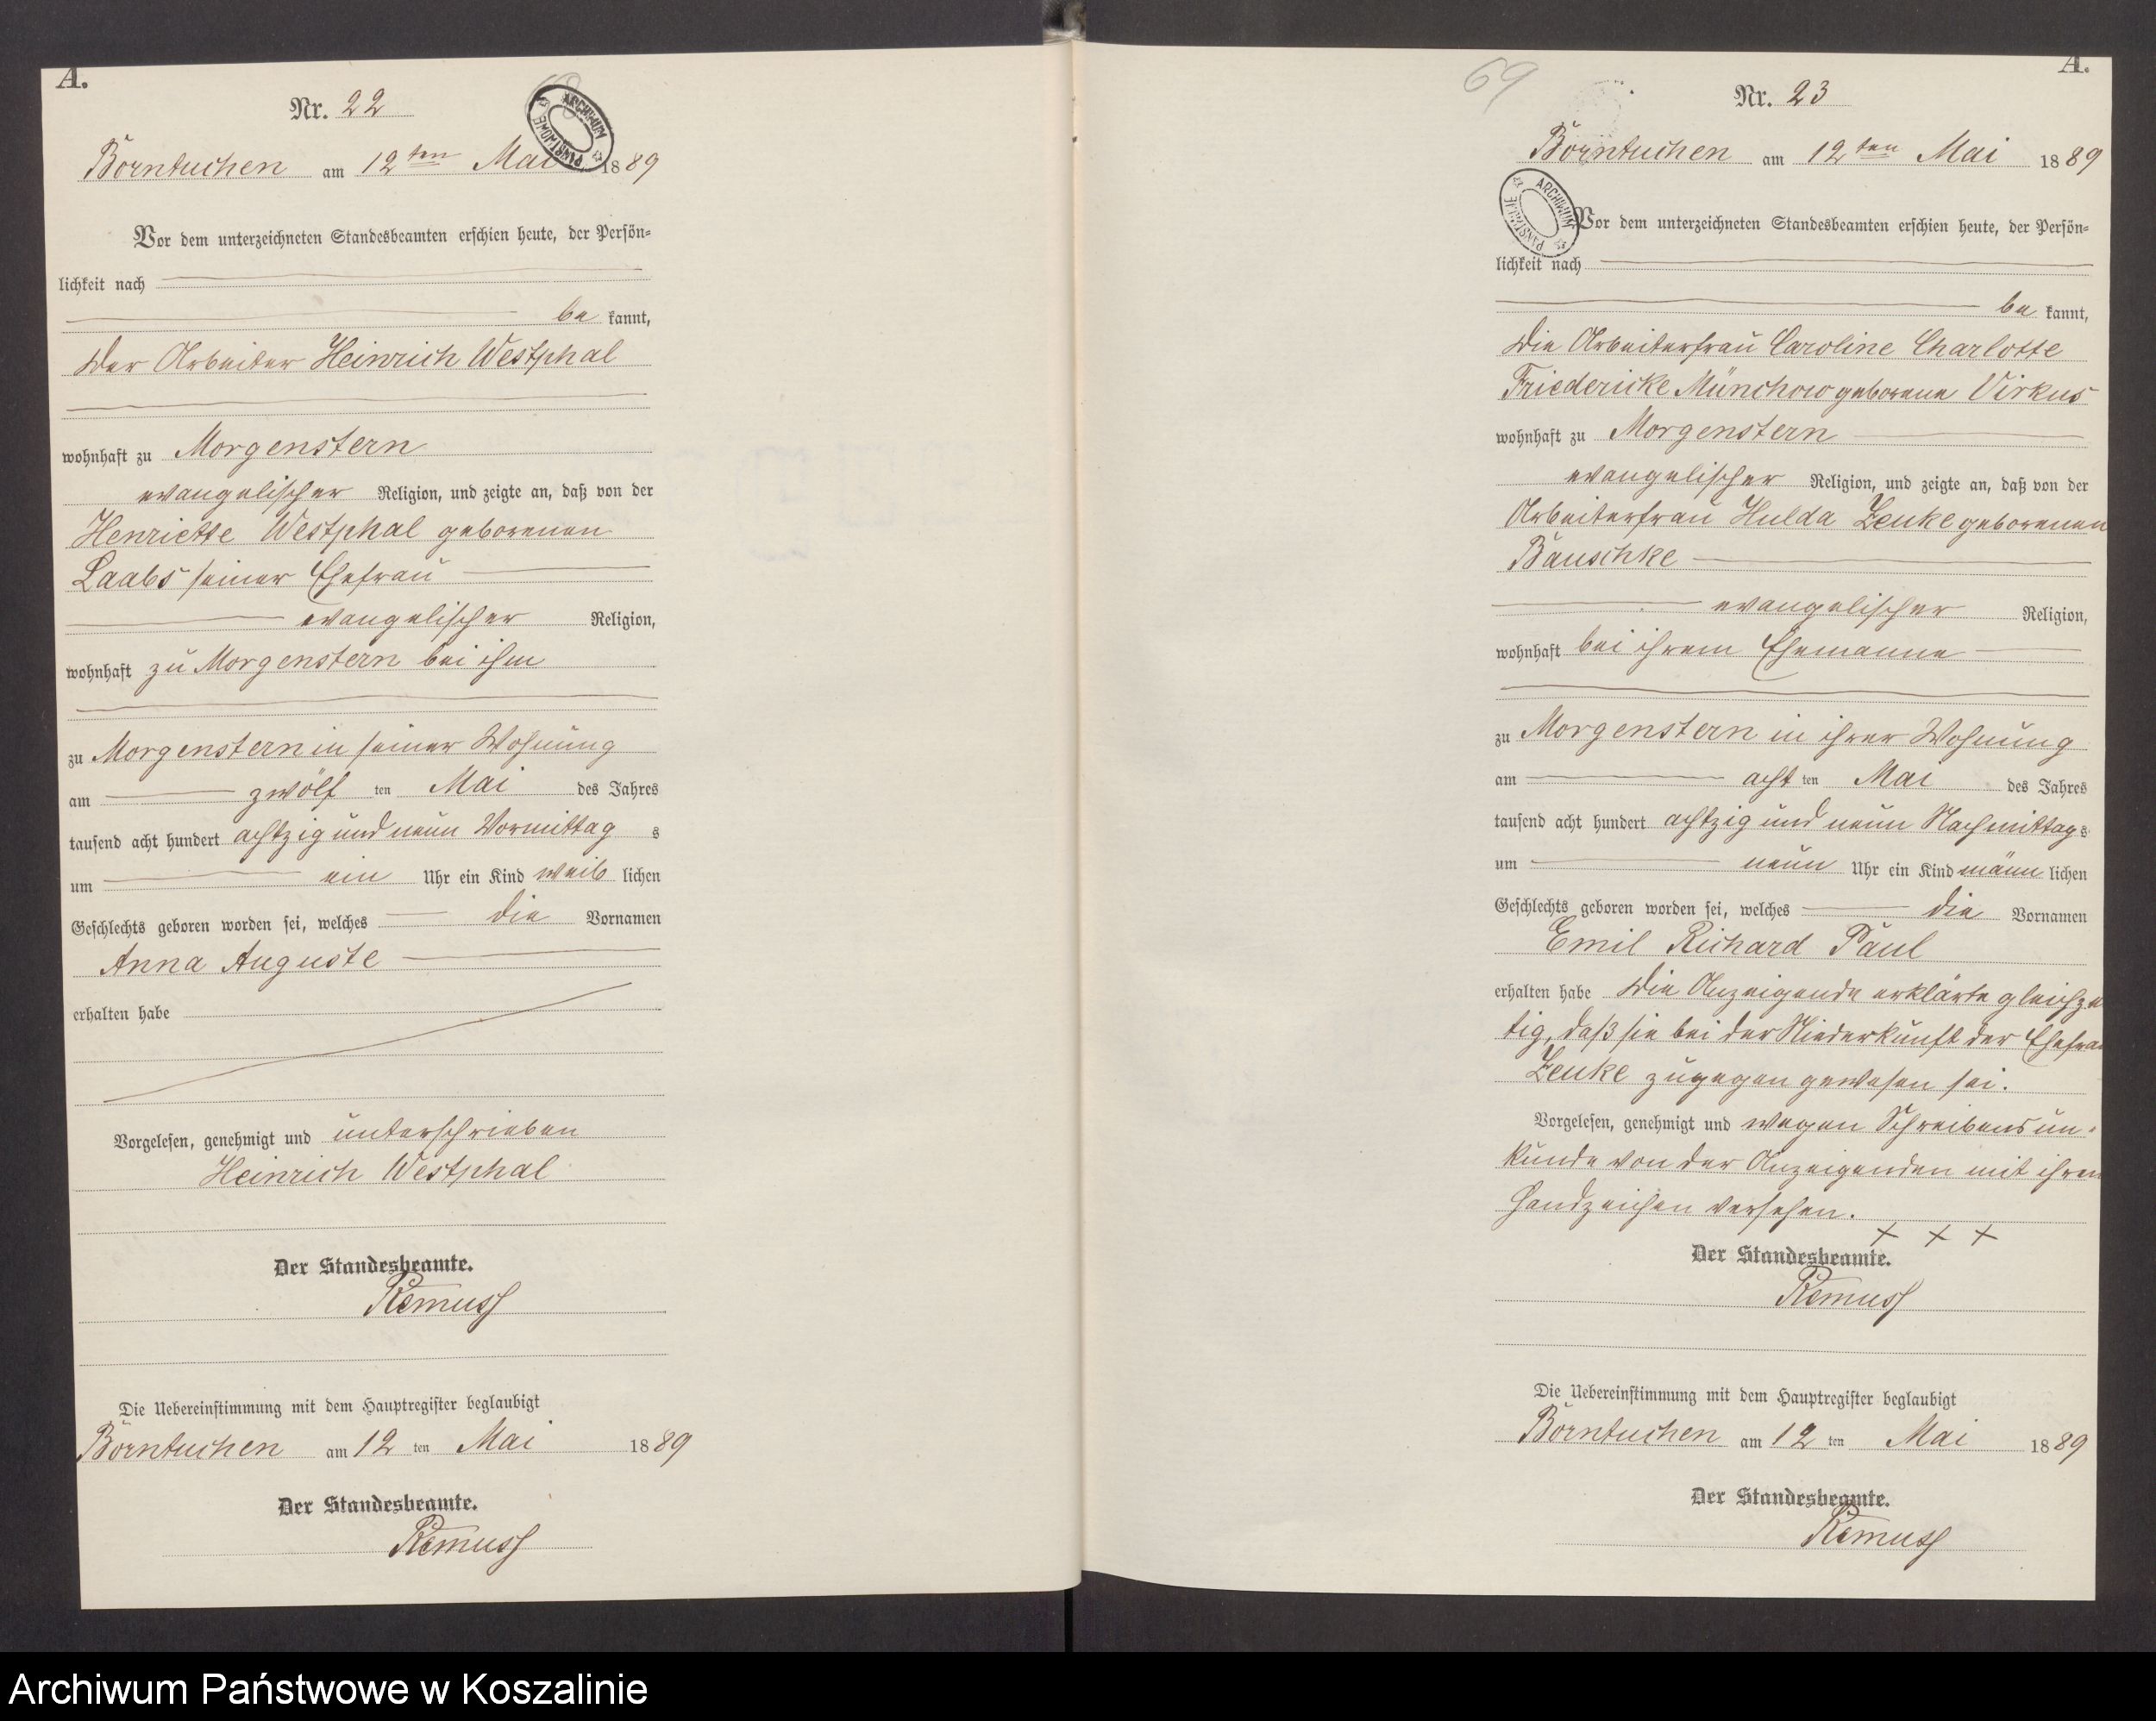 A.
Nr. 22
ARCHIWUM PAŃSTWOWE
Borntuchen am 12ten Mai 1889
Vor dem unterzeichneten Standesbeamten erschien heute, der Persön=
lichkeit nach
be kannt,
der Arbeiter Heinrich Westphal
wohnhaft zu Morgenstern
evangelischer Religion, und zeigte an, daß von der
Henriette Westphal geborenen
Laabs seiner Ehefrau
evangelischer Religion,
wohnhaft zu Morgenstern bei ihm
zu Morgenstern in seiner Wohnung
am zwölf ten Mai des Jahres
tausend acht hundert achtzig und neun Vormittag s
um ein Uhr ein Kind weib lichen
Geschlechts geboren worden sei, welches die Vornamen
Anna Auguste
erhalten habe
Vorgelesen, genehmigt und unterschrieben
Heinrich Westphal
Der Standesbeamte.
Remuss
Die Uebereinstimmung mit dem Hauptregister beglaubigt
Borntuchen am 12 ten Mai 1889
Der Standesbeamte.
Remuss
69
A.
Nr. 23
Borntuchen am 12ten Mai 1889
ARCHIWUM PAŃSTWOWE
Vor dem unterzeichneten Standesbeamten erschien heute, der Persön=
lichkeit nach
be kannt,
die Arbeiterfrau Caroline Charlotte
Friedericke Münchow geborene Virkus
wohnhaft zu Morgenstern
evangelischer Religion, und zeigte an, daß von der
Arbeiterfrau Hulda Zeuke geborenen
Bauschke
evangelischer Religion,
wohnhaft bei ihrem Ehemanne
zu Morgenstern in ihrer Wohnung
am acht ten Mai des Jahres
tausend acht hundert achtzig und neun Nachmittag s
um neun Uhr ein Kind männ lichen
Geschlechts geboren worden sei, welches die Vornamen
Emil Richard Paul
erhalten habe Die Anzeigende erklärte gleichzei
tig, daß sie bei der Niederkunft der Ehefrau
Zeuke zugegen gewesen sei.
Vorgelesen, genehmigt und wegen Schreibensun-
kunde von der Anzeigenden mit ihren
Handzeichen versehen.
+ + +
Der Standesbeamte.
Remuss
Die Uebereinstimmung mit dem Hauptregister beglaubigt
Borntuchen am 12 ten Mai 1889
Der Standesbeamte.
Remuss
Archiwum Państwowe w Koszalinie